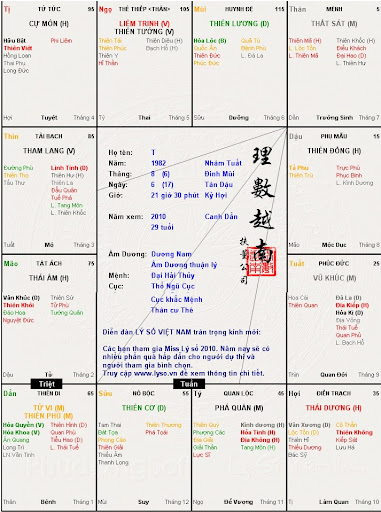 Tị TỬ TỨC 95
CỰ MÔN (H)
Hữu Bật Phi Liêm
Thiên Việt
Hồng Loan
Thai Phụ
Long Đức
Tử Tháng 4
Ngọ THÊ THIẾP <THÂN> 105
LIÊM TRINH (V)
THIÊN TƯỚNG (V)
Thiên Tài Thiên Diêu (H)
Thiên Phúc Bạch Hổ (H)
Thiên Y
Hỉ Thần
Tỵ Thai Tháng 5
Mùi HUYNH ĐỆ 115
THIÊN LƯƠNG (D)
Hóa Lộc (B) Quả Tú
Quốc Ấn Bệnh Phù
Thiên Đức L. Đà La
Phúc Đức
Sửu Dưỡng Tháng 6
Thân MỆNH 5
THẤT SÁT (M)
Thiên Mã (H) Thiên Khốc (H)
L. Lộc Tồn Điếu Khách
L. Thiên Mã Đại Hao (D)
L. Thiên Hư
Dần Trường Sinh Tháng 7
Thìn TÀI BẠCH 85
THAM LANG (V)
Đường Phù Linh Tinh (D)
Thiên Thọ Thiên Hư (H)
Tấu Thư Thiên La
Đẩu Quân
Tuế Phá
L. Tang Môn
L. Thiên Khốc
Tuất Mộ Tháng 3
Họ tên: T
Năm: 1982 Nhâm Tuất
Tháng: 8 (6) Đinh Mùi
Ngày: 6 (17) Tân Dậu
Giờ: 21 giờ 30 phút Kỷ Hợi
Năm xem: 2010 Canh Dần
29 tuổi
Âm Dương: Dương Nam
Âm Dương thuận lý
Mệnh: Đại Hải Thủy
Cục: Thổ Ngũ Cục
Cục khắc Mệnh
Thân cư Thê
Diễn đàn LÝ SỐ VIỆT NAM trân trọng kính mời:
Các bạn tham gia Miss Lý số 2010. Năm nay sẽ có
nhiều phần quà hấp dẫn cho người dự thi và
người tham gia bình chọn.
Truy cập www.lyso.vn để xem thông tin chi tiết.
理數越南
Dậu PHỤ MẪU 15
THIÊN ĐỒNG (H)
Tả Phụ Thiên Trù
Trực Phù
Phục Binh
L. Kình Dương
Mão Mộc Dục Tháng 8
Mão TẬT ÁCH 75
THÁI ÂM (H)
Văn Khúc (D) Thiên Sứ
Thiên Khôi Tử Phù
Đào Hoa Tướng Quân
Nguyệt Đức
Dậu Tử Tháng 2
Tuất PHÚC ĐỨC 25
VŨ KHÚC (M)
Hoa Cái Đà La (D)
Thiên Quan Địa Kiếp (H)
Hóa Kị (D)
Địa Võng
Thái Tuế
Quan Phủ
L. Bạch Hổ
Thìn Quan Đới Tháng 9
Triệt
Tuần
Dần THIÊN DI 65
TỬ VI (M)
THIÊN PHỦ (M)
Hóa Quyền (V) Thiên Hình (D)
Hóa Khoa (V) Quan Phù
Ân Quang Tiểu Hao (D)
Long Trì L. Thái Tuế
LN Văn Tinh
Thân Bệnh Tháng 1
Sửu NÔ BỘC 55
THIÊN CƠ (D)
Tam Thai Thiên Thương
Đát Tọa Phá Toái
Phong Cáo
Thiên Giải
Thiếu Âm
Thanh Long
Mùi Suy Tháng 12
Tý QUAN LỘC 45
PHÁ QUÂN (M)
Thiên Quý Kình dương (H)
Phượng Các Hỏa Tinh (H)
Địa Giải Địa Không (H)
Giải Thần Tang Môn (H)
Lực Sĩ
Ngọ Đế Vượng Tháng 11
Hợi ĐIỀN TRẠCH 35
THÁI DƯƠNG (H)
Văn Xương (D) Cô Thần
Lộc Tồn (D) Thiên Không
Thiên Hỉ Kiếp Sát
Thiếu Dương Lưu Hà
Bác Sĩ
Tị Lâm Quan Tháng 10